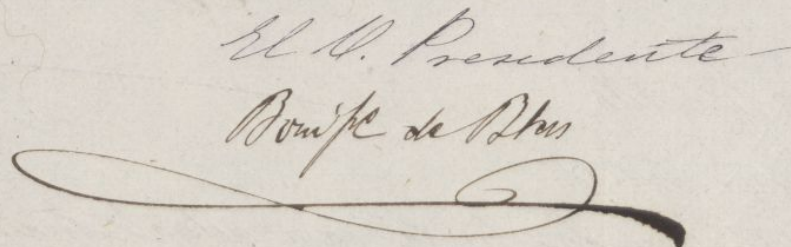 El V. Presidente
Bonif.º de Blas